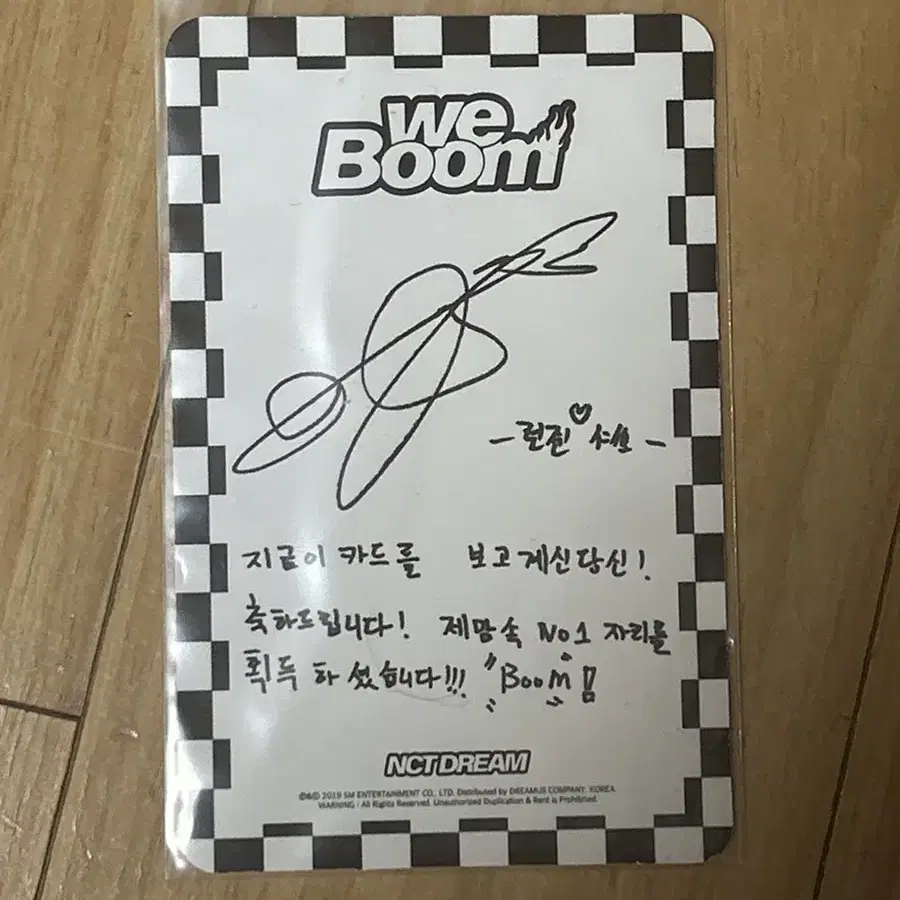 we
Boom
- 런쥔♡ 샤쓰 -
지금이 카드를 보고계신당신!
축하드립니다! 제맘속 No1 자리를
획득하셨습니다!!! "Boom"!
NCT DREAM
©&℗ 2019 SM ENTERTAINMENT CO., LTD. Distributed by DREAMUS COMPANY. KOREA
WARNING : All Rights Reserved. Unauthorized Duplication & Rent is Prohibited.